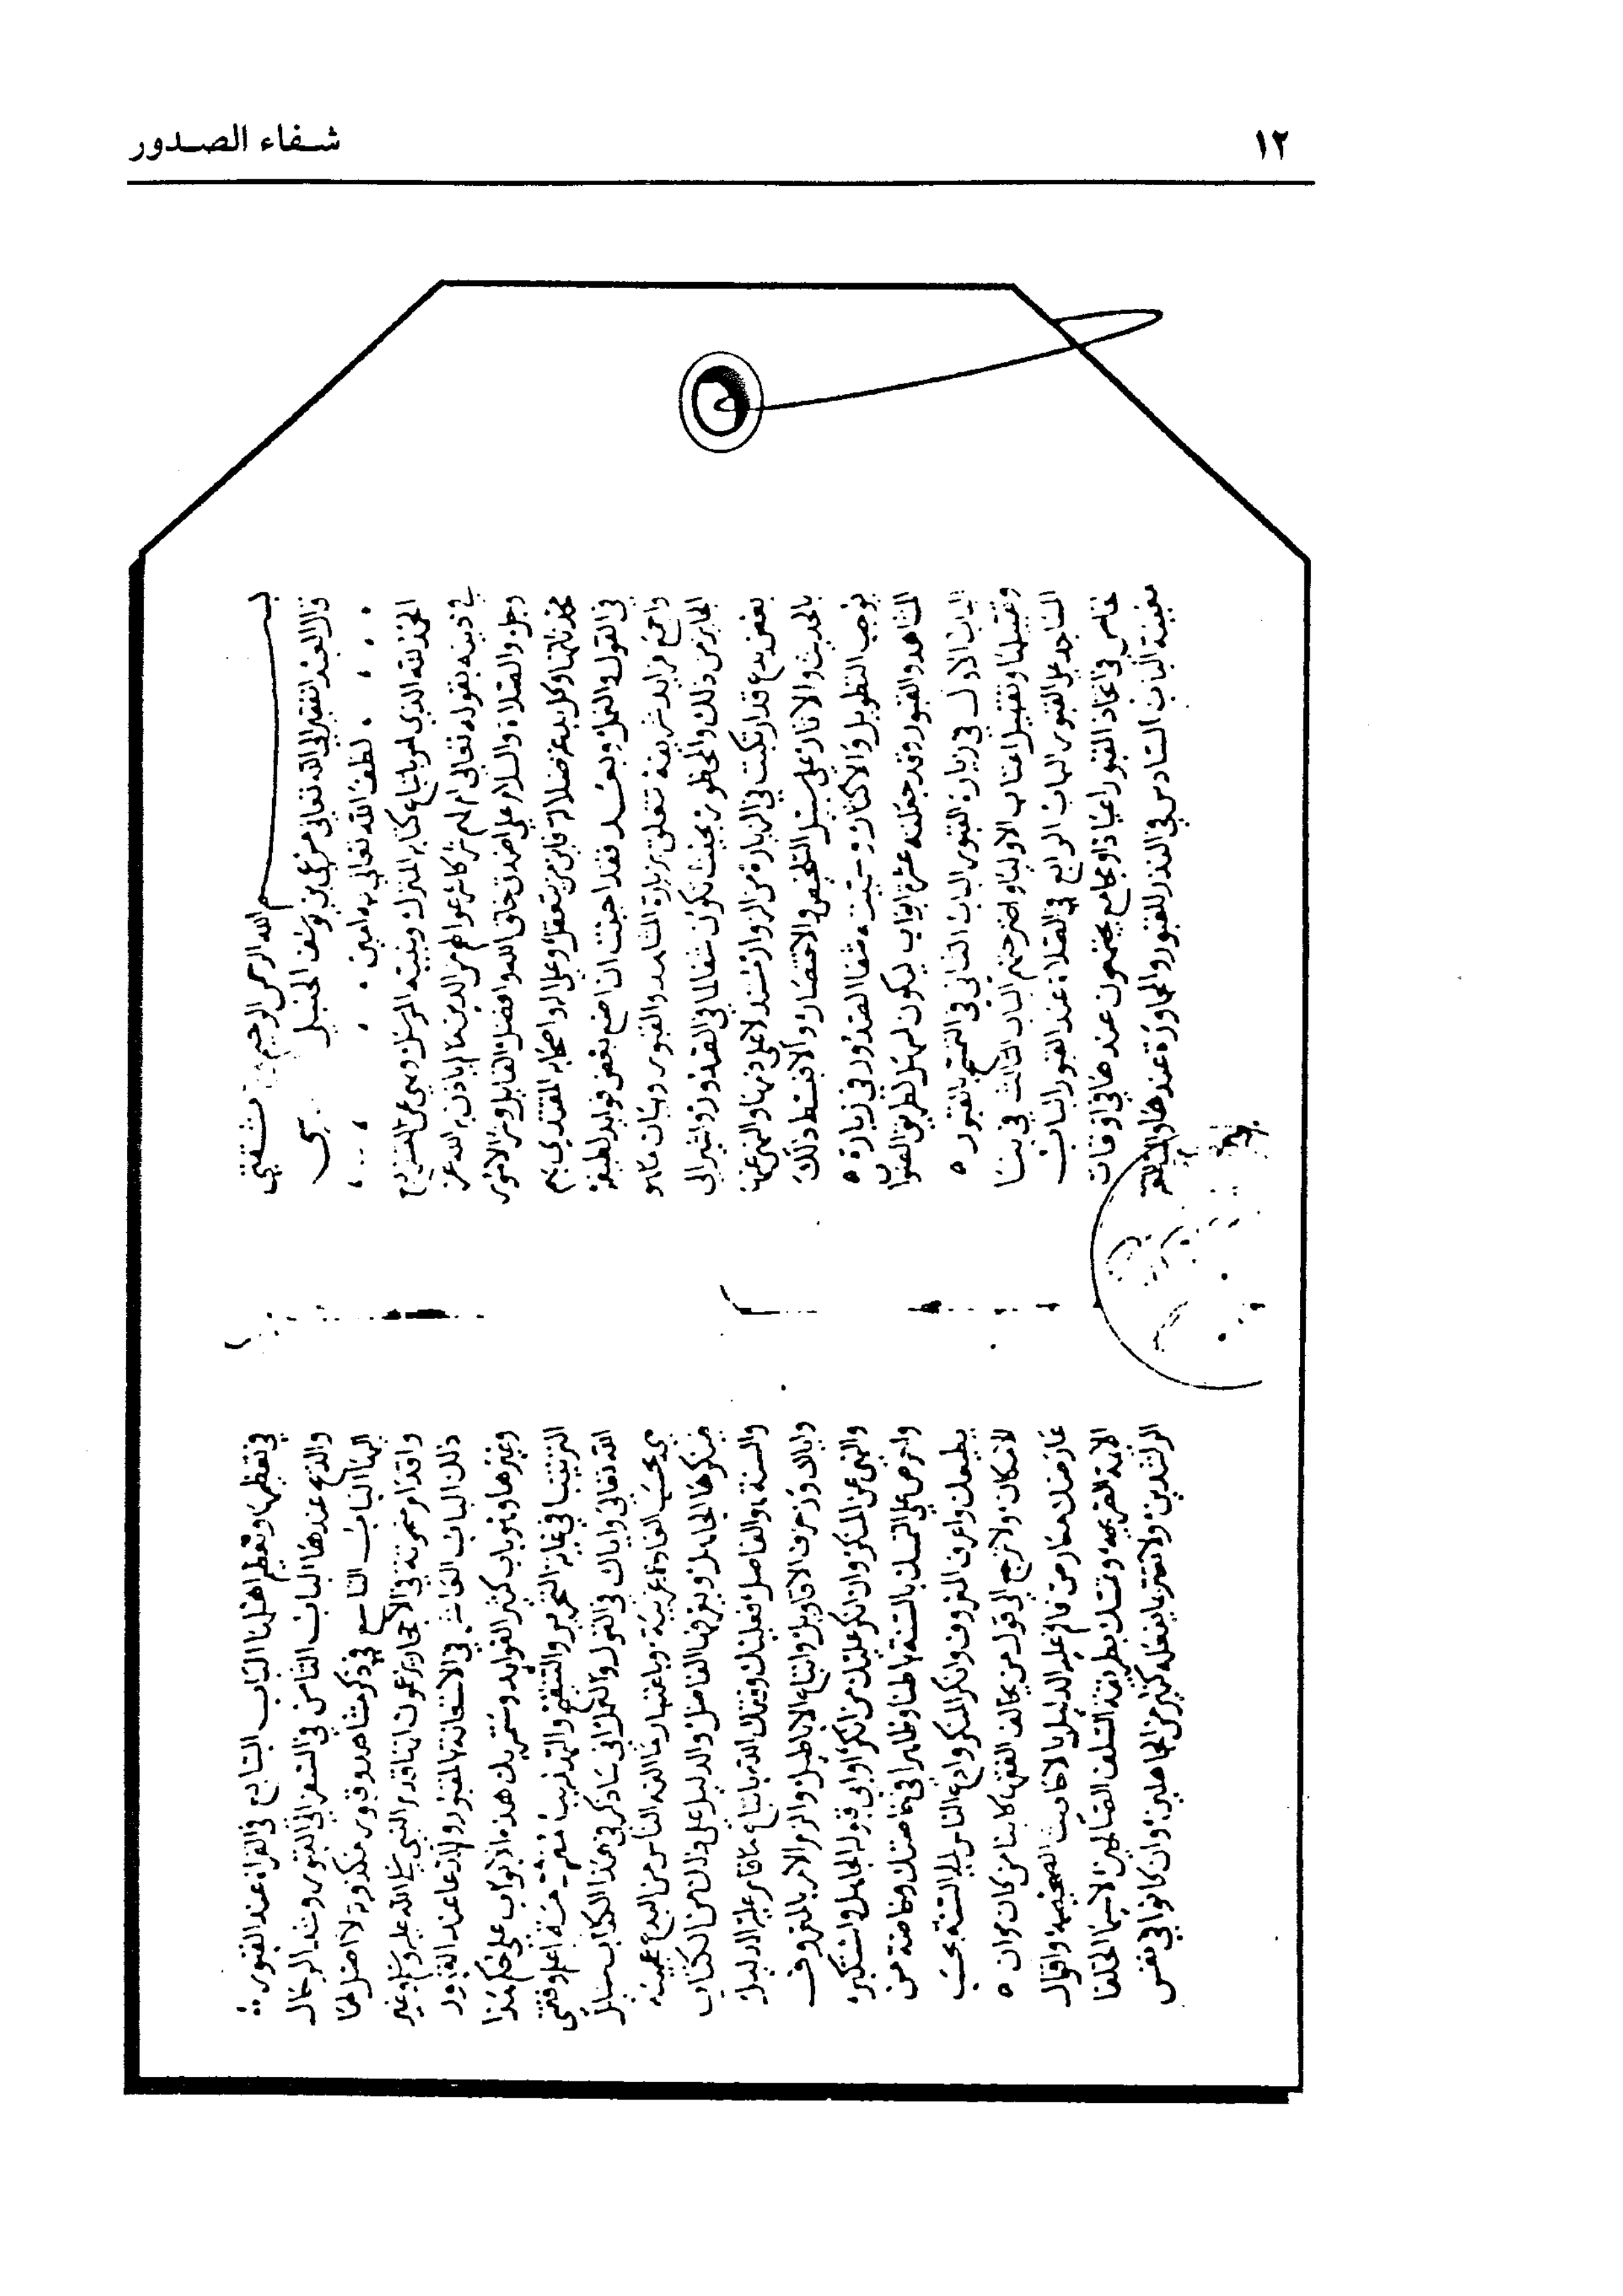 ١٢
شفاء الصدور
بسم الله الرحمن الرحيم ثقتي
قال العبد الفقير الى الله تعالى مرعي بن يوسف الحنبلي
لطف الله تعالى به امين
الحمد لله الذي امر باتباع كتابه المنزل ونبيه المرسل ونهى عن التشريع
في دينه بقوله تعالى ام لهم شركاء شرعوا لهم من الدين ما لم ياذن به الله عز
وجل والصلاة والسلام على اصدق خلق الله وافضل القايل وشر الامور
محدثاتها وكل بدعة ضلالة فاين من يتعقل وعلى اله واصحابه المقتدي بهم
في القول والعمل وبعد فقد احببت ان اضع بعض فوايد لطيفة
واجمع فرايد شريفة تتعلق بزيارة المشاهد والقبور وبيان ما هو
الجايز من ذلك والمحظور بحيث تكون شفا لما في الصدور واشير الى
بعض بدع قد ارتكبت في الزيارة من الزوار مستدلا على ذمها والنهي عنها
بالحديث والاثار على سبيل التلخيص والاختصار والا فبسط ذلك
يوجب التطويل والاكثار وسميته شفا الصدور في زيارة
المشاهد والقبور وقد جعلته عشرة ابواب ليكون اسهل لطريق الصواب
الباب الاول في زيارة القبور الباب الثاني في التمسح بالقبور
وتقبيلها وتقبيل اعتاب الاوليا واضرحتهم الباب الثالث في بنا
المساجد على القبور الباب الرابع في الصلاة عند القبور الباب
خامس في اتخاذ القبور اعيادا ومجامع يجتمعون عندها في اوقات
معينة الباب السادس في النذر للقبور والمجاورة عندها والمبالغة
في تعظيمها وتعظيم اهلها الباب السابع في القراءة عند القبور
والذبح عندها الباب الثامن في السفر الى القبور وشد الرحال
اليها الباب التاسع في ذكر مشاهد وقبور مكذوبة لا اصل لها
واقدام منحوتة في الاحجار يزعمون انها اقدام النبي صلى الله عليه وسلم وغير
ذلك الباب العاشر في الاستغاثة بالمقبور والدعا عند القبور
وغيرها وهو باب كثير الفوايد وستمر بك هذه الابواب على حكم هذا
الترتيب في غاية التحرير والتنقيح والتهذيب اعلم وفقني
الله تعالى واياك في القول والعمل اني ساذكر في هذا الكتاب مسائل
هي بحسب العادة غريبة وباعتبار ما الفه الناس من البدع عجيبة
ينكرها الجاهل ويعرفها الفاضل والدليل على ذلك من الكتاب
والسنة والفاصل فعليك وفقك الله باتباع ما قام عليه الدليل
واياك وزخرف الاقاويل واتباع الاباطيل والزم الامر بالمعروف
والنهي عن المنكر وان انكر عليك من انكر او ابى قبوله الجاهل واستكبر
واحرص على التمسك بالسنة باطنا وظاهرا في خاصتك وخاصة من
يطيعك واعرف المعروف وانكر المنكر وادع الناس الى السنة بحسب
الامكان ولا ترجع الى قول من يخالف الفقها كاينا من كان
عارضك معارض فاقم عليه الدليل بالاحاديث الصحيحة واقوال
الائمة الصريحة وتمسك بطريقة السلف الصالحين لا سيما الخلفا
الراشدين ولا تغتر بما يفعله كثير من الجاهلين وان كانوا في نفس